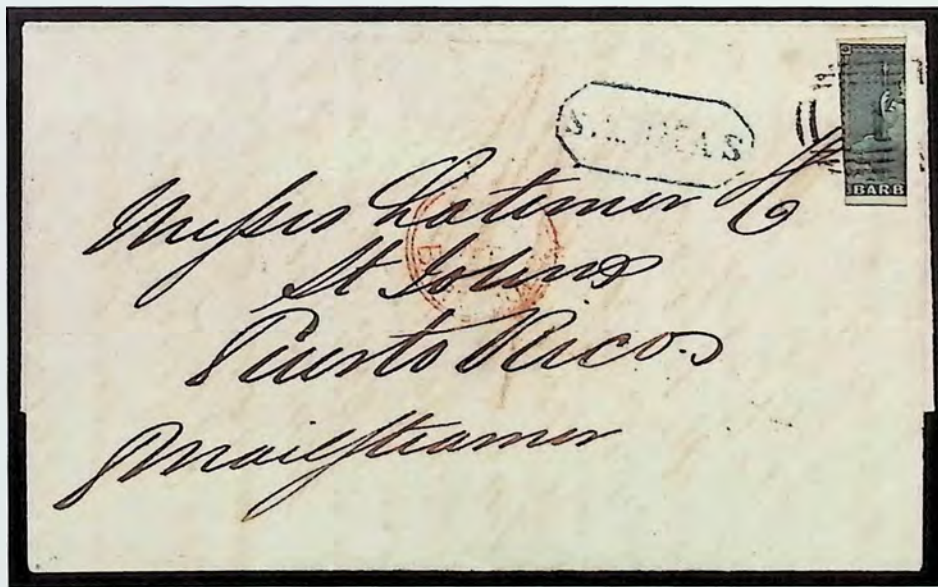 BARB
Messrs Latimer & Co
St Johns
Puerto Rico
p Mail Steamer